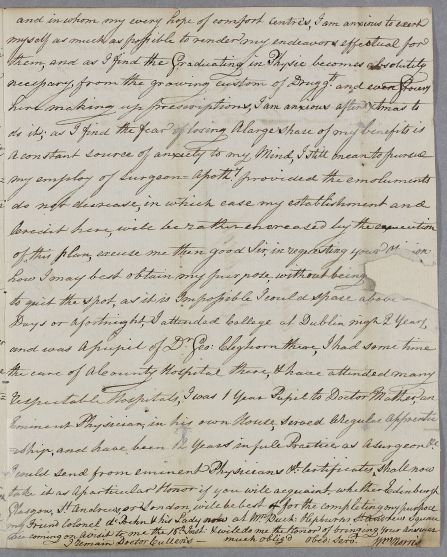 and in whom my every hope of comfort centres, I am anxious to exert
myself as much as possible to render my endeavors effectual for
them, and as I find the Graduating in Physic becomes absolutely
necessary, from the growing custom of Druggts. and even Grocers
here making up prescriptions, I am anxious after Xmas to
do it; as I find the fear of losing a large share of my benefits is
a constant source of anxiety to my Mind, I still mean to pursue
my employ of Surgeon Apothy. provided the emoluments
do not decrease, in which case my establishment and
Credit here, will be rather encreased by the execution
of this plan, excuse me then good Sir, in requesting your
how I may best obtain my purpose, without being
to quit the spot, as it is Impossible I could space above
Days or a fortnight, I attended College at Dublin nigh 2 Years,
and was a pupil of Dr. Geo: Cleghorn there, I had some time
the care of a County Hospital there, & have attended many
respectable Hospitals, I was 1 Year Pupil to Doctor Mather, an
Eminent Physician, in his own House, served a regular Apprentice
-ship, and have been Years in full Practice as a Surgeon &c
I could send from eminent Physicians &c. Certificates, shall now
take it as a particular Honor if you will acquaint, whether Edinburgh
Glasgow, St. Andrews, or London, will be best for the completing my purpose
my Friend Colonel & his Lady now at Mr. Buck: Hepburns St. Andrews Square
are coming on a visit to me the 16th. Inst. & will do me the Honor of bringing your answer
I remain Doctor Cullen's much oblig'd & obed: Servt. Wm. Harris